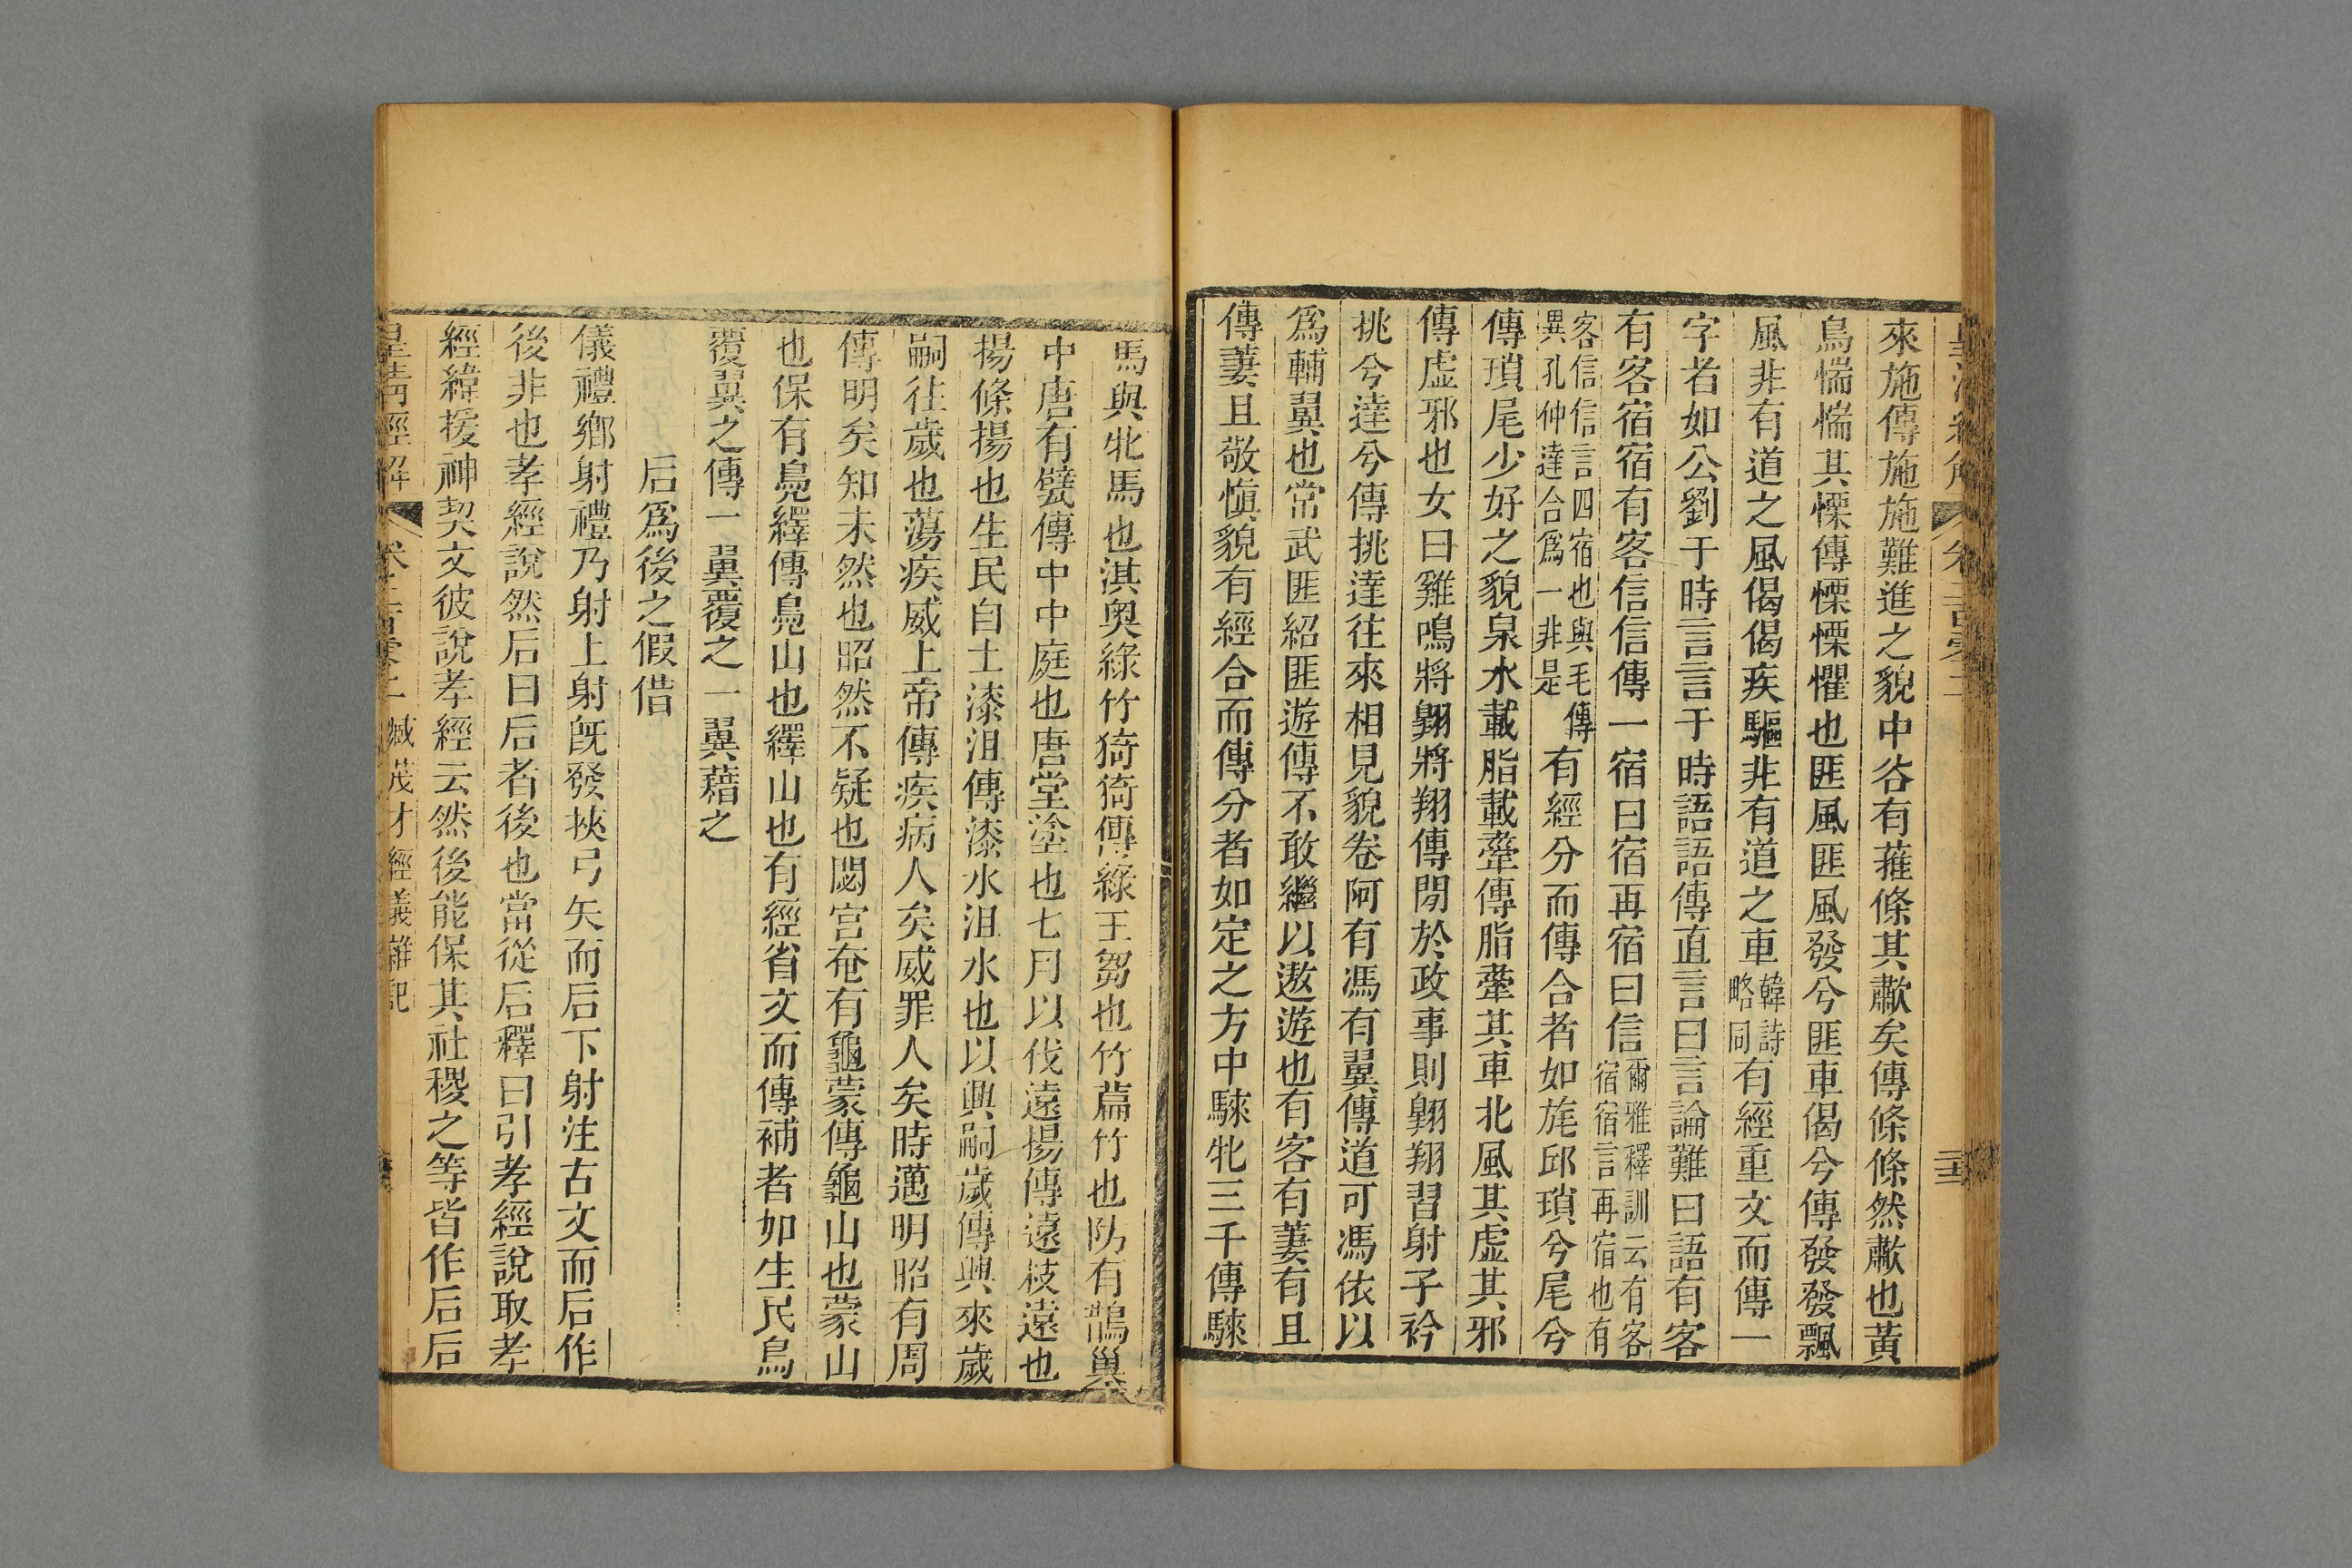 來施傳施施難進之貌中谷有蓷條其歗矣傳條條然歗也黃
鳥惴惴其慄傳慄慄懼也匪風匪風發兮匪車偈兮傳發發飄
風非有道之風偈偈疾驅非有道之車韓詩略同有經重文而傳一
字者如公劉于時言言于時語語傳直言曰言論難曰語有客
有客宿宿有客信信傳一宿曰宿再宿曰信爾雅釋訓云有客宿宿言再宿也有
客信信言四宿也與毛傳異孔仲達合爲一非是有經分而傳合者如旄邱瑣兮尾兮
傳瑣尾少好之貌泉水載脂載舝傳脂舝其車北風其虛其邪
傳虛邪也女曰雞鳴將翺將翔傳閒於政事則翺翔習射子衿
挑兮達兮傳挑達往來相見貌卷阿有馮有翼傳道可馮依以
爲輔翼也常武匪紹匪遊傳不敢繼以遨遊也有客有萋有且
傳萋且敬愼貌有經合而傳分者如定之方中騋牝三千傳騋
馬與牝馬也淇奥綠竹猗猗傳綠王芻也竹萹竹也防有鵲巢
中唐有甓傳中中庭也唐堂塗也七月以伐遠揚傳遠枝遠也
揚條揚也生民自土漆沮傳漆水沮水也以興嗣歲傳興來歲
嗣往歲也蕩疾威上帝傳疾病人矣威罪人矣時邁明昭有周
傳明矣知未然也昭然不疑也閟宮奄有龜蒙傳龜山也蒙山
也保有鳧繹傳鳧山也繹山也有經省文而傳補者如生民鳥
覆翼之傳一翼覆之一翼藉之
后爲後之假借
儀禮鄉射禮乃射上射旣發挾弓矢而后下射注古文而后作
後非也孝經說然后曰后者後也當從后釋曰引孝經說取孝
經緯援神契文彼說孝經云然後能保其社稷之等皆作后后
皇清經解 卷二百零二 臧茂才經義雜記